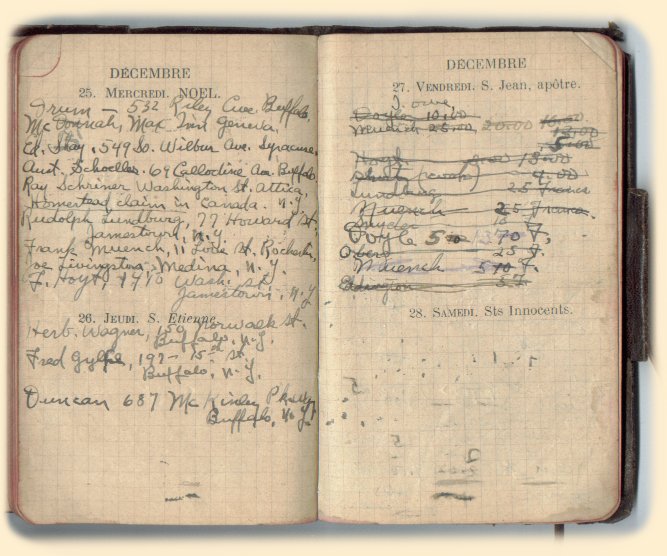 DÉCEMBRE
25. MERCREDI. NOEL.
Frum – 532 Riley Ave. Buffalo,
McDonnah, Max Inn Geneva.
Ed. Shay. 549 So. Wilbur Ave. Syracuse.
Aust. Schoelles. 69 Ave. Buffalo
Ray Schriner Washington St. Attica,
Homestead claim in Canada. N.Y.
Rudolph Lundburg, 77 Howard St.
Jamestown, N.Y.
Frank Muench, 11 Lodi St, Rochester,
Joe Livingston, Medina, N.Y.
F. Hoyt, 1710 Wash. St.
Jamestown, N.Y.
26. JEUDI. S. Etienne
Herb. Wagner, 159 Norwalk St.
Buffalo, N.Y.
Fred 197 - 15th St.
Buffalo, N.Y.
Duncan 687 McKinley Pkwy
Buffalo, N.Y.
DÉCEMBRE
27. VENDREDI. S. Jean, apôtre.
I owe,
Doyle 10.00
Muench 25.00 20.00
5.00
Hoyt 18.00
4.00
Lundburg 25 Francs
Muench 25 Francs.
Snyder 15
Doyle 5 70 F.
25 F.
Muench 5 F.
57
28. SAMEDI. Sts Innocents.